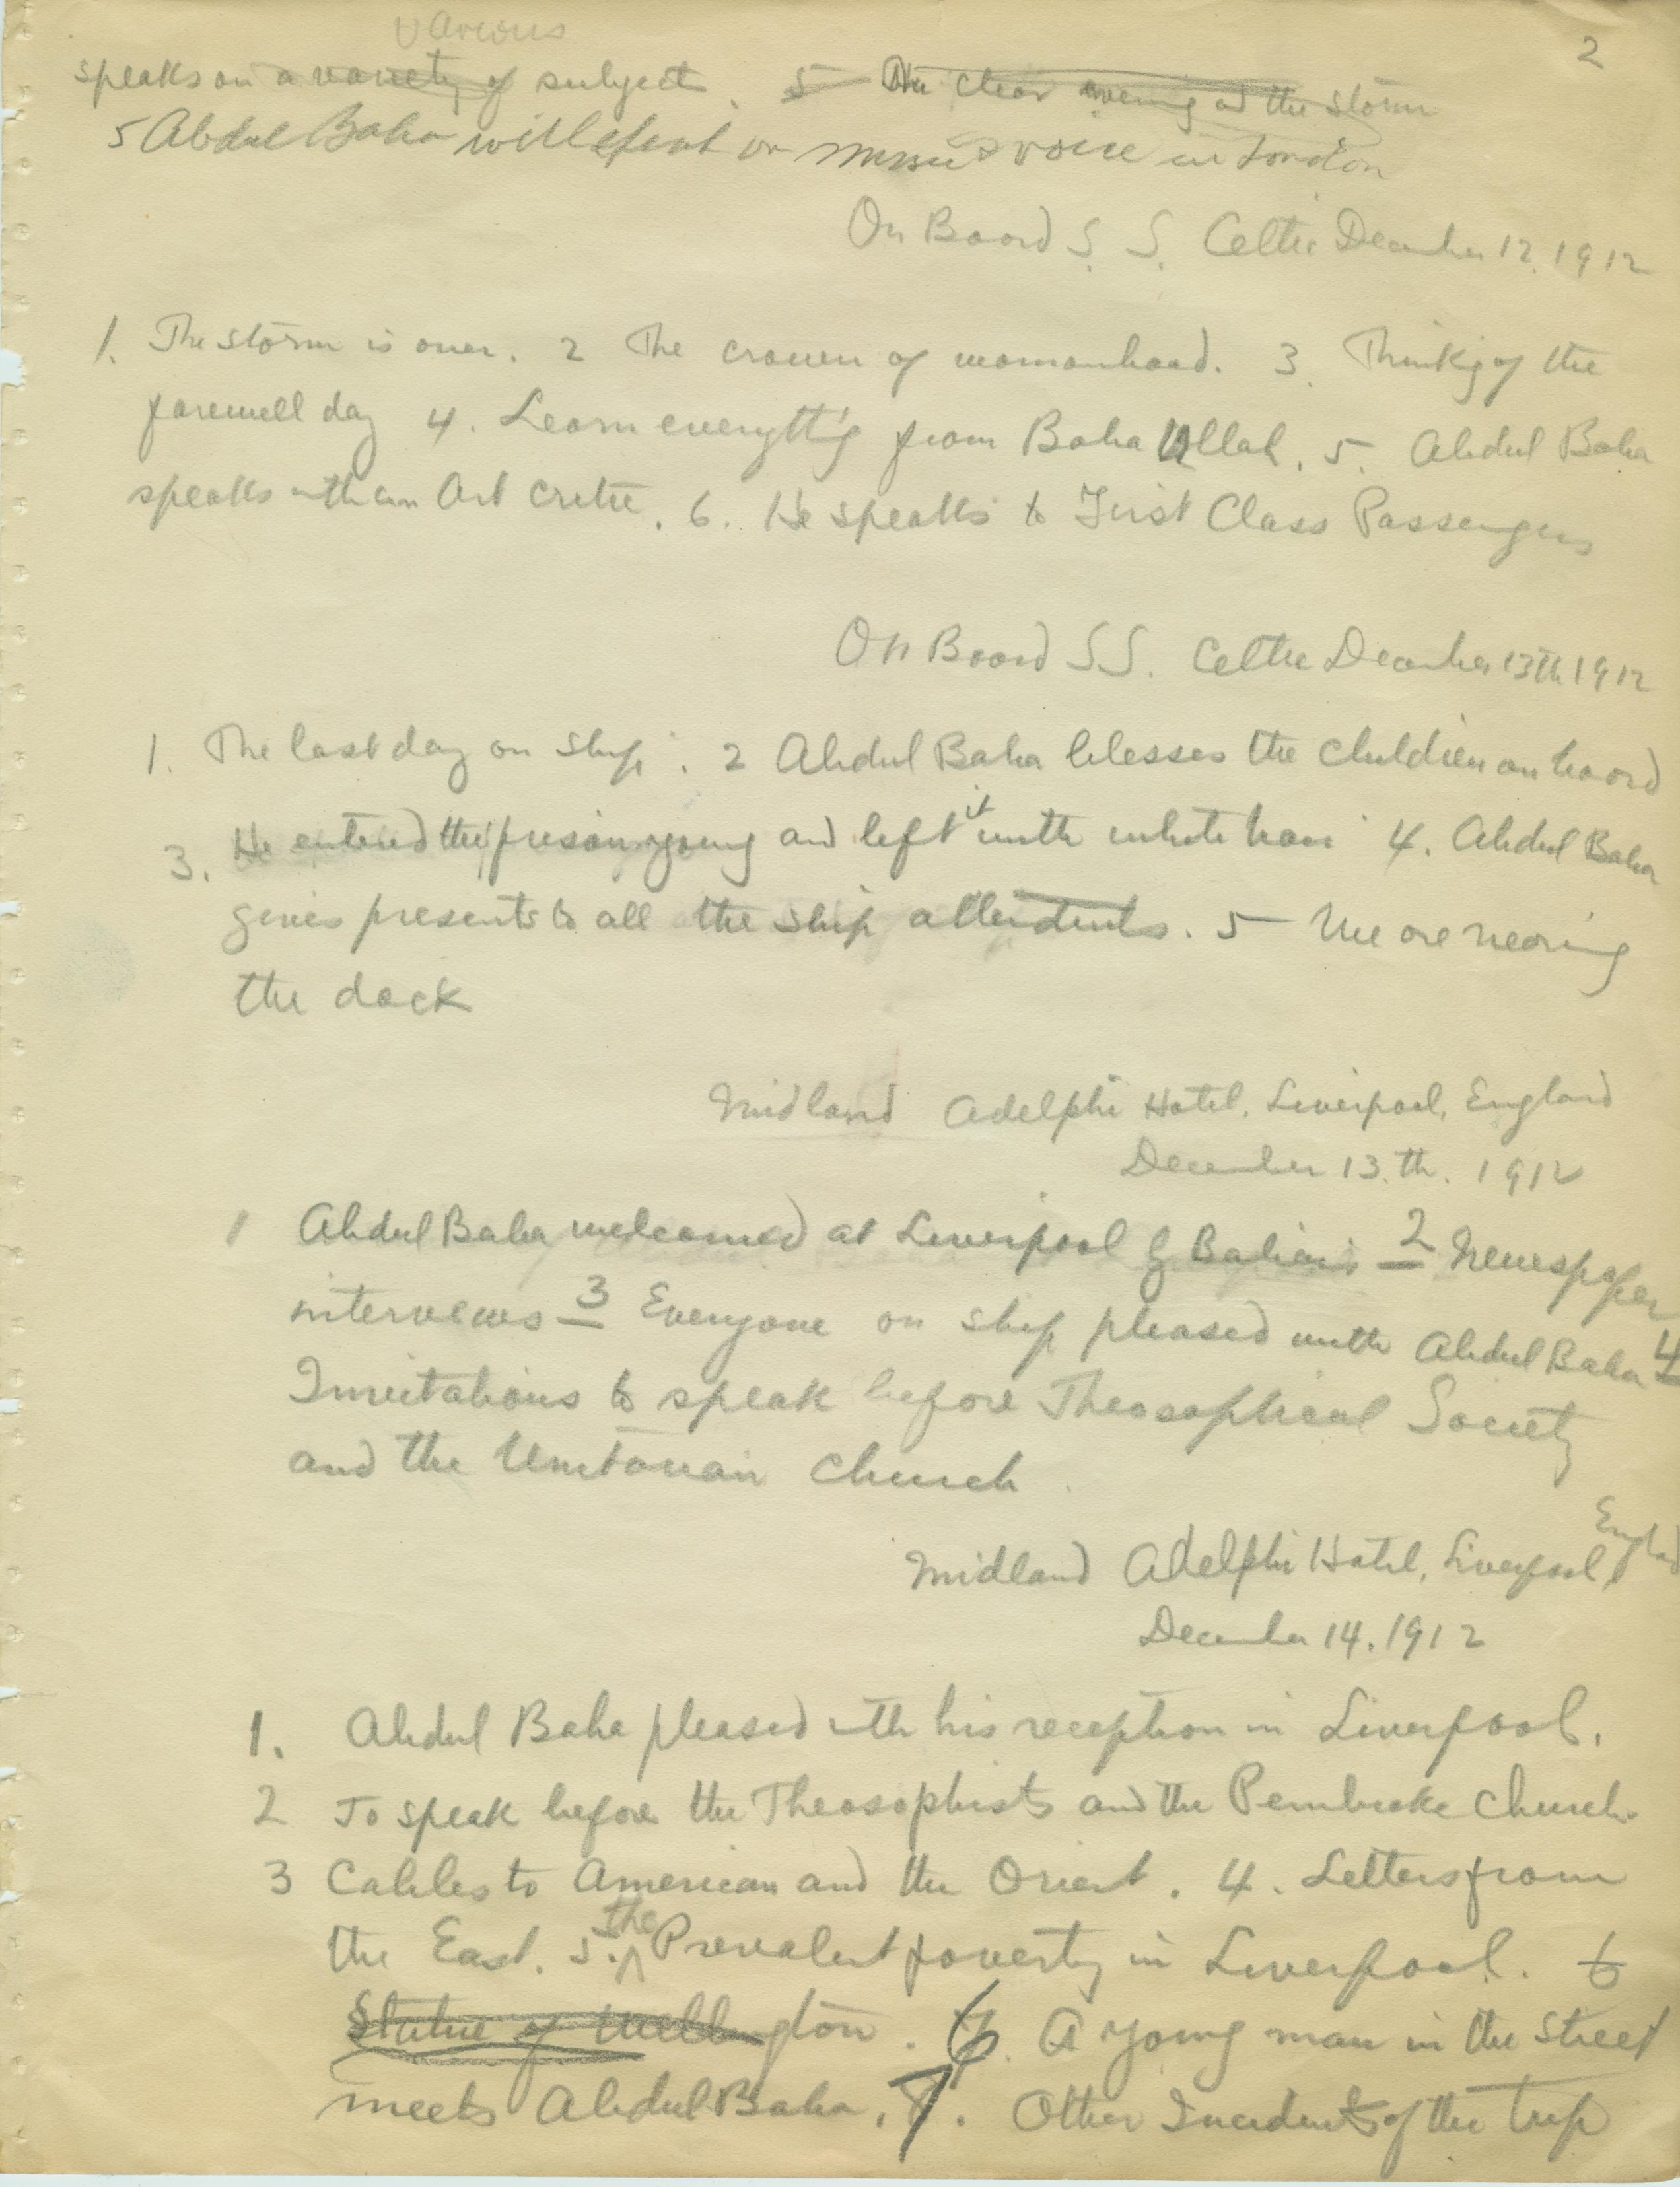 2
various
speaks on a variety of subject. 5 The clear evening and the storm
5 Abdul Baha will speak on music & voice in London
On Board S. S. Celtic December 12. 1912
1. The storm is over. 2 The crown of womanhood. 3. Thinkg of the
farewell day 4. Learn everyth'g from Baha Ullah. 5. Abdul Baha
speaks with an Art Critic. 6. He speaks to First Class Passengers
On Board SS. Celtic December 13th 1912
1. The last day on ship. 2 Abdul Baha blesses the children on board
3. He entered the prison young and left it with white hair 4. Abdul Baha
gives presents to all the ship attendents. 5 We are nearing
the dock
Midland Adelphi Hotel, Liverpool, England
December 13.th. 1912
1 Abdul Baha welcomed at Liverpool by Bahais — 2 Newspaper
interviews — 3 Everyone on ship pleased with Abdul Baha 4
Invitations to speak before Theosophical Society
and the Unitarian Church
Midland Adelphi Hotel, Liverpool, England
December 14. 1912
1. Abdul Baha pleased with his reception in Liverpool.
2 To speak before the Theosophists and the Pembroke Church.
3 Cables to American and the Orient. 4. Letters from
the East. 5. the Prevalent poverty in Liverpool. 6
Statue of Wellington. 6. A young man in the street
meets Abdul Baha. 7. Other Incidents of the trip